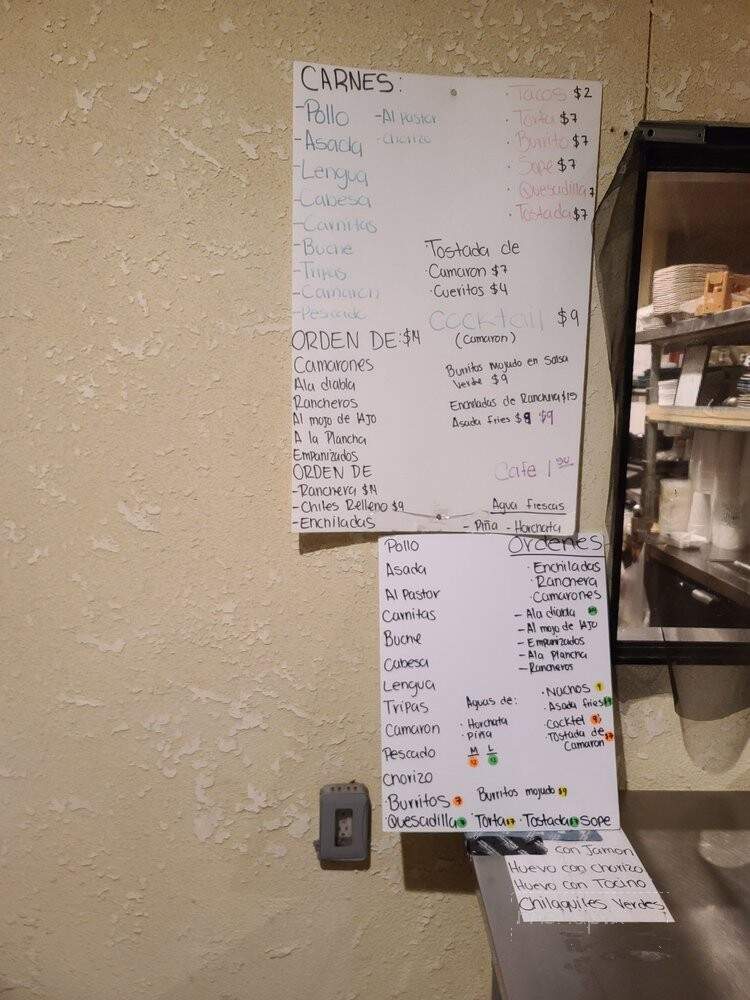 CARNES:
-Pollo -Al Pastor
-Asada -Chorizo
-Lengua
-Cabesa
-Carnitas
-Buche
-Tripas
-Camaron
-Pescado
·Tacos $2
·Torta $7
·Burrito $7
·Sope $7
·Quesadilla 7
·Tostada $7
Tostada de
·Camaron $7
·Cueritos $4
COCKTail $9
(camaron)
ORDEN DE: $14
Camarones
Ala diabla
Rancheros
Al mojo de AJO
A la Plancha
Empanizados
ORDEN DE
-Ranchera $14
-Chiles Relleno $9
-Enchiladas
Burritos mojado en Salsa
verde $9
Enchiladas de Ranchera $15
Asada fries $9 $9
Cafe 1.50
Agua frescas
- Piña - Horchata
Pollo
Asada
Al Pastor
Carnitas
Buche
Cabesa
Lengua
Tripas
Camaron
Pescado
Chorizo
Ordenes
·Enchiladas
·Ranchera
·Camarones
- Ala diabla
- Al mojo de AJO
- Empanizados
- Ala Plancha
- Rancheros
·Nachos 9
·Asada fries
·Cocktel 9
·Tostada de
Camaron
Aguas de:
·Horchata
·Piña
M L
·Burritos 7 Burritos mojado $9
·Quesadilla ·Torta $7 ·Tostada ·Sope
con Jamon
Huevo con Chorizo
Huevo con Tocino
Chilaquiles Verdes